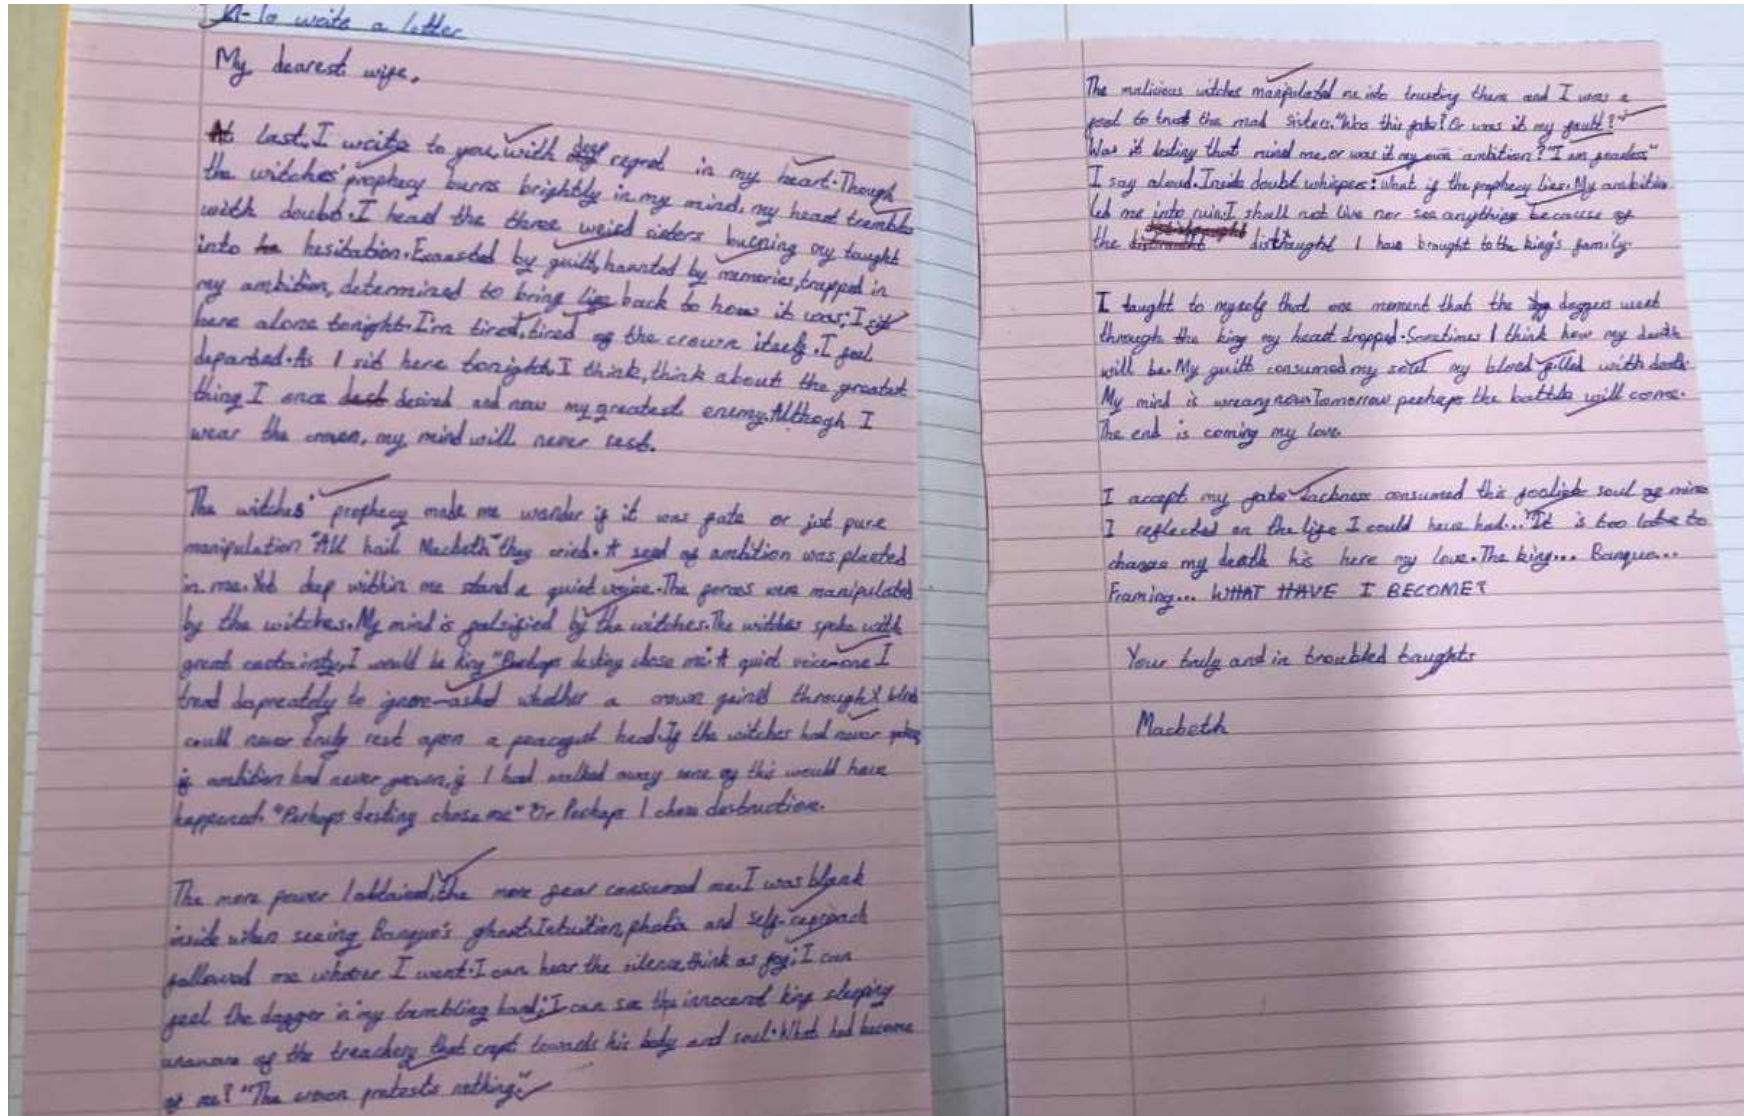 LI-To write a letter
My dearest wife,
At last, I write to you, with deep regret in my heart. Though
the witches' prophecy burns brightly in my mind, my heart trembles
with doubt. I head the three weird sisters burning my taught
into hesitation. Exausted by guilt, haunted by memories, trapped in
my ambition, determined to bring life back to how it was; I sit
here alone tonight. I'm tired, tired of the crown itself. I feel
departed. As I sit here tonight, I think, think about the greatest
thing I once desired and now my greatest enemy. Althogh I
wear the crown, my mind will never rest.
The witches' prophecy made me wonder if it was fate or just pure
manipulation "All hail Macbeth" they cried. A seed of ambition was planted
in me. Yet deep within me stand a quiet voice. The forces were manipulated
by the witches. My mind is falsified by the witches. The witches spoke with
great certainty, I would be king "Perhaps destiny chose me". A quiet voice-one I
tread despreately to ignore-asked whether a crown gained through blood
could never truly rest upon a peacefull head. If the witches had never spoken,
if ambition had never grown, if I had walked away none of this would have
happened. "Perhaps destiny chose me" Or Perhaps I chose destruction.
The more power I obtained, the more fear consumed me. I was blank
inside when seeing Banquo's ghost. Intuition, phobia and self-reproach
followed me whatever I went. I can hear the silence, think as fog; I can
feel the dagger in my trembling hand; I can see the innocent king sleeping
unaware of the treachery that crept towards his body and soul. What had become
of me? "The crown protects nothing."
The malicious witches manipulated me into trusting them and I was a
fool to trust the mad sisters. "Was this fate? Or was it my fault?"
Was it destiny that ruind me, or was it my own ambition? "I am fearless"
I say aloud. Inside doubt whispers: what if the prophecy lies. My ambition
led me into ruin. I shall not live nor see anything because of
the distraught I have brought to the king's family.
I taught to myself that one moment that the daggers went
through the king my heart dropped. Sometimes I think how my death
will be. My guilt consumed my soul my blood filled with death.
My mind is weary now. Tomorrow perhaps the battle will come.
The end is coming my love.
I accept my fate. consumed this foolish soul of mine
I reflected on the life I could have had... "It is too late to
change my death his here my love. The king... Banquo...
Framing... WHAT HAVE I BECOME?
Your truly and in troubled taughts
Macbeth